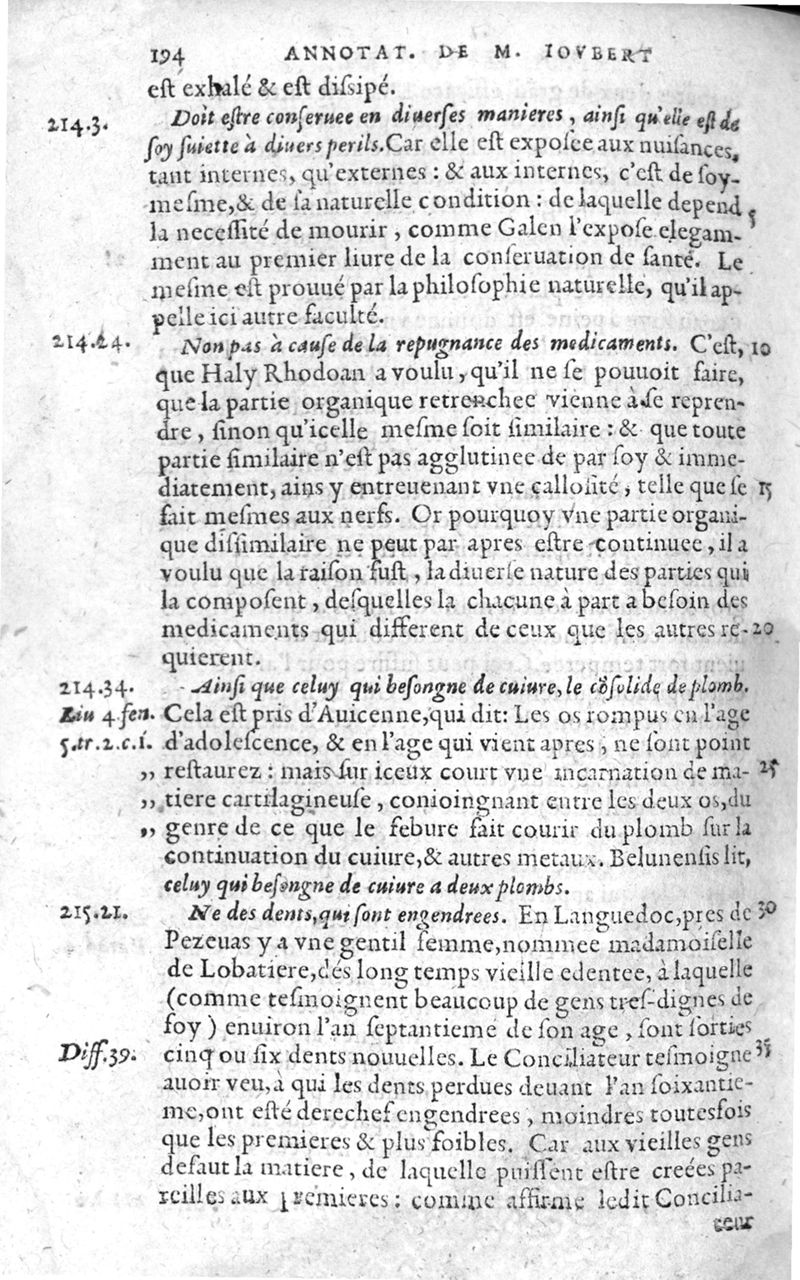 194 ANNOTAT. DE M. IOVBERT
est exhalé & est dissipé.
214.3. Doit estre conseruee en diuerses manieres, ainsi qu'elle est de
soy suiette à diuers perils. Car elle est exposee aux nuisances,
tant internes, qu'externes : & aux internes, c'est de soy-
mesme, & de sa naturelle condition : de laquelle depend 5
la necessité de mourir, comme Galen l'expose elegam-
ment au premier liure de la conseruation de santé. Le
mesme est prouué par la philosophie naturelle, qu'il ap-
pelle ici autre faculté.
214.24. Non pas à cause de la repugnance des medicaments. C'est, 10
que Haly Rhodoan a voulu, qu'il ne se pouuoit faire,
que la partie organique retrenchee vienne à se repren-
dre, sinon qu'icelle mesme soit similaire : & que toute
partie similaire n'est pas agglutinee de par soy & imme-
diatement, ains y entreuenant vne callosité, telle que se 15
fait mesmes aux nerfs. Or pourquoy vne partie organi-
que dissimilaire ne peut par apres estre continuee, il a
voulu que la raison fust, la diuerse nature des parties qui
la composent, desquelles la chacune à part a besoin des
medicaments qui different de ceux que les autres re- 20
quierent.
214.34. Ainsi que celuy qui besongne de cuiure, le cõsolide de plomb.
Liu 4 fen. Cela est pris d'Auicenne, qui dit: Les os rompus en l'age
5.tr.2.c.1. d'adolescence, & en l'age qui vient apres, ne sont point
,, restaurez : mais sur iceux court vne incarnation de ma- 25
,, tiere cartilagineuse, conioingnant entre les deux os, du
,, genre de ce que le febure fait courir du plomb sur la
continuation du cuiure, & autres metaux. Belunensis lit,
celuy qui besongne de cuiure a deux plombs.
215.21. Ne des dents, qui sont engendrees. En Languedoc, pres de 30
Pezeuas y a vne gentil femme, nommee madamoiselle
de Lobatiere, dés long temps vieille edentee, à laquelle
(comme tesmoignent beaucoup de gens tres-dignes de
foy) enuiron l'an septantieme de son age, sont sorties
Diff.39. cinq ou six dents nouuelles. Le Conciliateur tesmoigne 35
auoir veu, à qui les dents perdues deuant l'an soixantie-
me, ont esté derechef engendrees, moindres toutesfois
que les premieres & plus foibles. Car aux vieilles gens
defaut la matiere, de laquelle puissent estre creées pa-
reilles aux premieres : comme affirme ledit Concilia-
teur